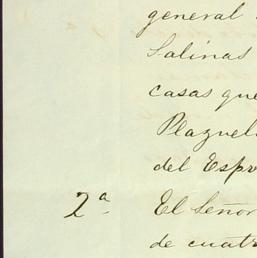 general
Salinas
casas que
Plazuel
del Espr
2ª El Señor
de cuatr